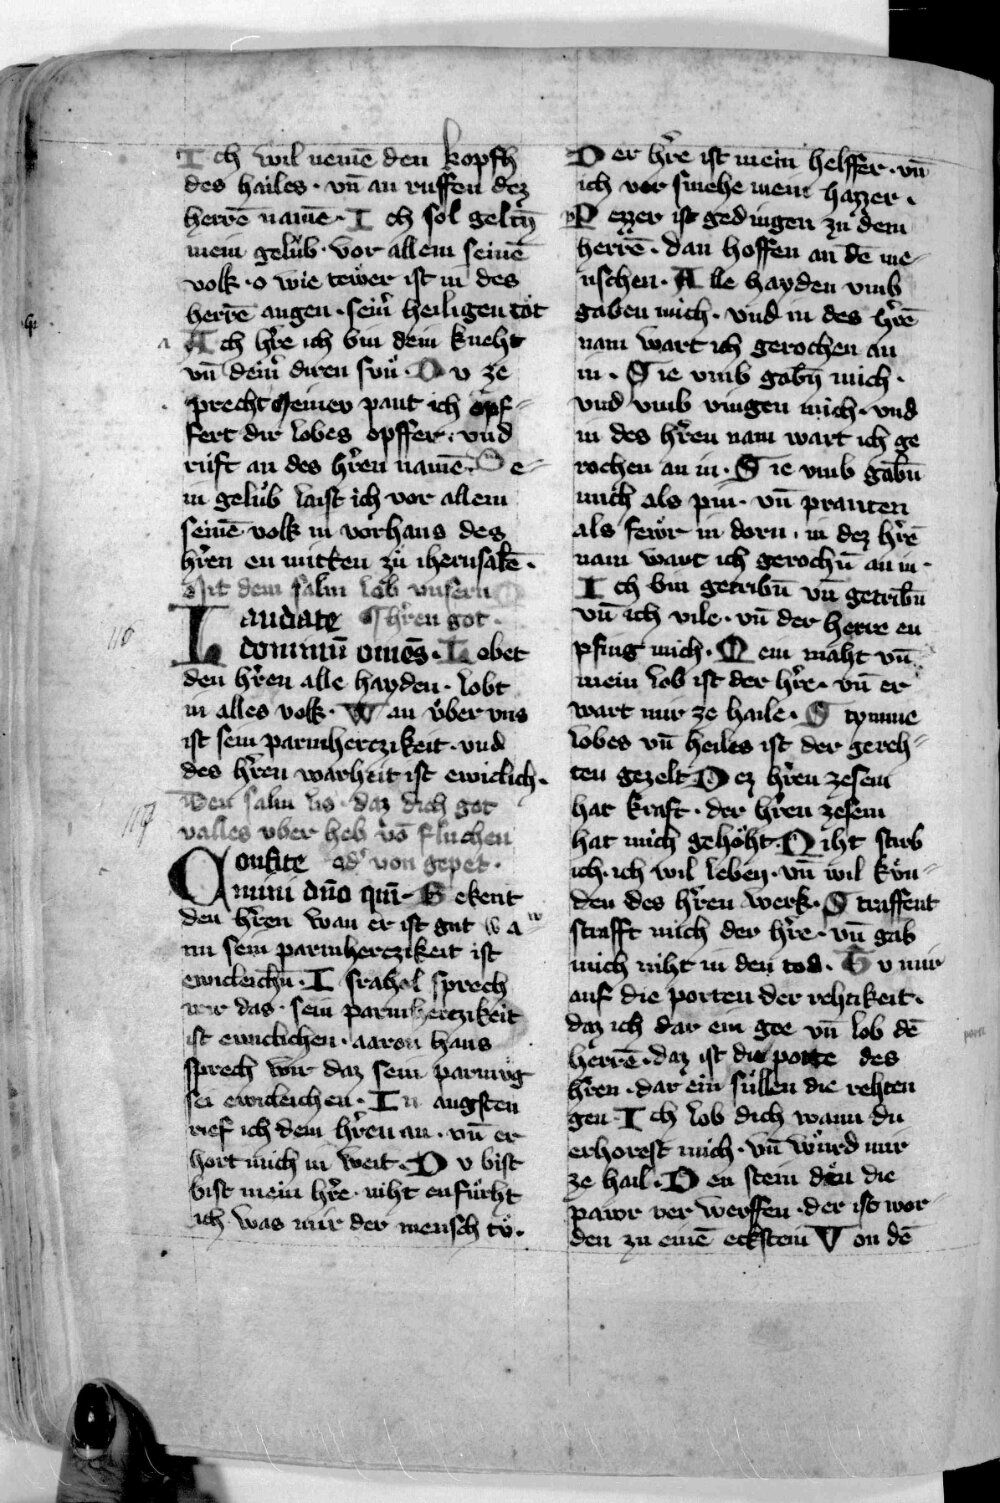 Ich wil nemē den kopfh
des hailes · vn̄ an ruffen dez
herrē namē · Ich sol geltn̄
mein gelūb · vor allem seinē
volk · o wie tewer ist in des
herrē augen · sein̄ heiligen tot
Ach hr̄e ich bin dein kneht
vn̄ dein̄ diren sun · Du ze
precht meineu pant ich opf-
fert dir lobes opffer · vnd
rüft an des hr̄en namē · Me-
in gelüb laist ich vor allem
seinē volk in vorhaus des
hr̄en en mitten zů iherusalē ·
Mit dem salm lob vnsern
Laudate hr̄en got ·
dominū om̄es · Lobet
den hr̄en alle hayden · lobt
in alles volk · Wan über vns
ist sein parmherczikeit · vnd
des hr̄en warheit ist ewiclich ·
Den salm lis · daz dich got
valles vber heb vō fluchen
Confite od' von gepet ·
mini dn̄o qm̄ · Bekent
den hr̄en wan er ist gut wa
nn sein parmherczikeit ist
ewicleichn̄ · Israhel sprech
wir das · sein parmherczikeit
ist ewiclichen · aaron haus
sprech wir daz sein parmug
sei ewicleichen · In angsten
rief ich dem hr̄en an · vn̄ er
hort mich in weit · Du bist
bist mein hr̄e · niht enfürht
ich · was mir der mensch tů ·
Der hr̄e ist mein helffer · vn̄
ich ver smehe mein hazzer ·
Pezzer ist gedingen zu dem
herrē · dan hoffen an dē me-
nschen · Alle hayden vmb
gaben mich · vnd in des hr̄ē
nam wart ich gerochen an
in · Sie vmb gabn̄ mich ·
vnd vmb vingen mich · vnd
in des hr̄en nam wart ich ge
rochen an in · Sie vmb gabn̄
mich als pin · vn̄ pranten
als fewr in dorn · in dez hr̄ē
nam wart ich gerochn̄ an in ·
Ich bin getribn̄ vn̄ getribn̄
vn̄ ich vile · vn̄ der herre en
pfing mich · Mein maht vn̄
mein lob ist der hr̄e · vn̄ er
wart mir ze haile · Stymme
lobes vn̄ heiles ist der gereh-
ten gezelt Dez hr̄en zesem
hat kraft · der hr̄en zesem
hat mich gehöht · Niht stirb
ich · ich wil leben · vn̄ wil kün-
den des hr̄en werk · Straffent
strafft mich der hr̄e · vn̄ gab
mich niht in den tod · Tu mir
auf die porten der rehtikeit ·
daz ich dar ein gee vn̄ lob dē
herrē · daz ist die porte des
hr̄en · dar ein süllen die rehten
gen · Ich lob dich wann du
erhorest mich · vn̄ würd mir
ze hail · Den stein den die
pawr ver werffen · der ist wor-
den zu einē eckstein Von dē